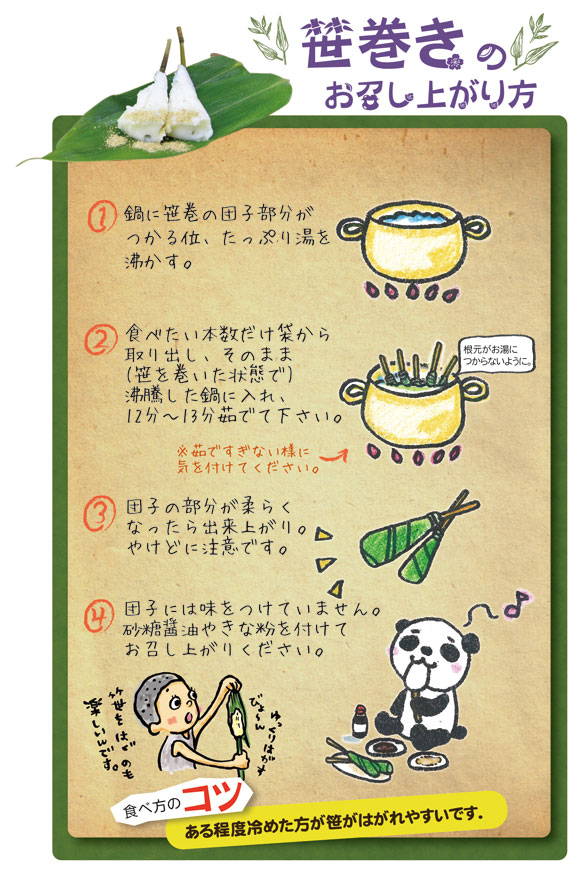 笹巻きの
お召し上がり方
① 鍋に笹巻の団子部分が
つかる位、たっぷり湯を
沸かす。
② 食べたい本数だけ袋から
取り出し、そのまま
(笹を巻いた状態で)
沸騰した鍋に入れ、
12分～13分茹でて下さい。
根元がお湯に
つからないように。
※茹ですぎない様に
気を付けてください。
③ 団子の部分が柔らく
なったら出来上がり。
やけどに注意です。
④ 団子には味をつけていません。
砂糖醤油やきな粉を付けて
お召し上がりください。
びよ～ん
ゆっくりはがす
笹をはぐのも
楽しいんです。
食べ方のコツ
ある程度冷めた方が笹がはがれやすいです.